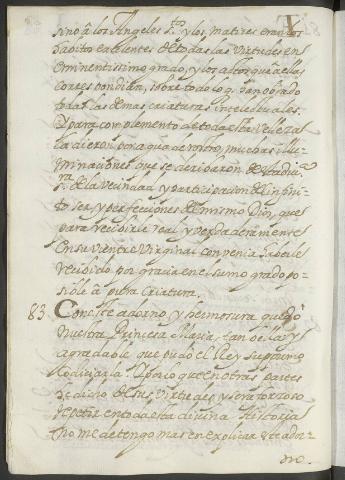 sino â los Angeles S.tos y los matices eran los
habitos exçelentes de todas las virtudes en
eminentissimo grado, y los actos que a ellas
correspondian, sobre todo lo q. han obrado
todas las demas criaturas intelectuales.
Y para complemento de toda esta velleza
la dieron por agua de rostro, muchas illu-
minaciones, que se deribaron de la divi-
de la vecindad y participacion de infini-
to ser, y perfecciones de mismo Dios, que
para recibirle real y verdaderamente
en su vientre Virginal convenia haberle
recibido por gracia en el sumo grado po-
sible â pura Criatura.
83. Con este adorno y hermosura quedô
nuestra Princesa Maria, tan bella y
agradable que pudo el Rey Supremo
codiciarla. Y por lo que en otras partes
he dicho de sus virtudes, y sera forzoso
repetir en toda esta divina Historia
no me detengo mas en explicar este ador-
no.